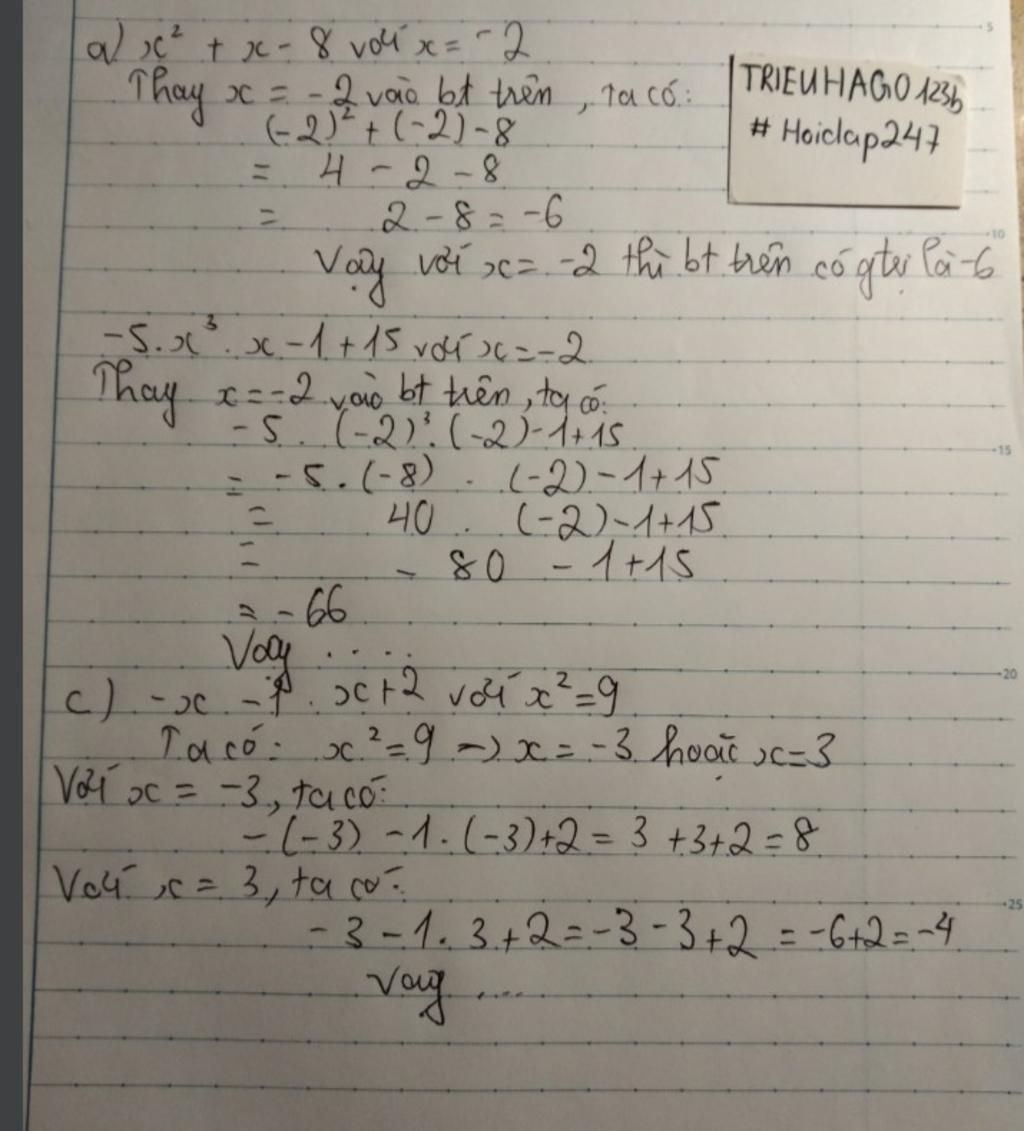 a) x² + x - 8 với x = -2
Thay x = -2 vào bt trên, ta có:
(-2)² + (-2) - 8
= 4 - 2 - 8
= 2 - 8 = -6
Vậy với x = -2 thì bt trên có gtrị là -6
TRIEUHAGO123b
# Hoidap247
-5.x³.x - 1 + 15 với x = -2
Thay x = -2 vào bt trên, ta có:
-5 . (-2)³.(-2) - 1 + 15
= -5.(-8) . (-2) - 1 + 15
= 40 . (-2) - 1 + 15
= - 80 - 1 + 15
= -66
Vậy ....
c) -x - 1 . x + 2 với x² = 9
Ta có: x² = 9 → x = -3 hoặc x = 3
Với x = -3, ta có:
-(-3) - 1.(-3) + 2 = 3 + 3 + 2 = 8
Với x = 3, ta có:
-3 - 1.3 + 2 = -3 - 3 + 2 = -6 + 2 = -4
Vậy ....
5
10
15
20
25